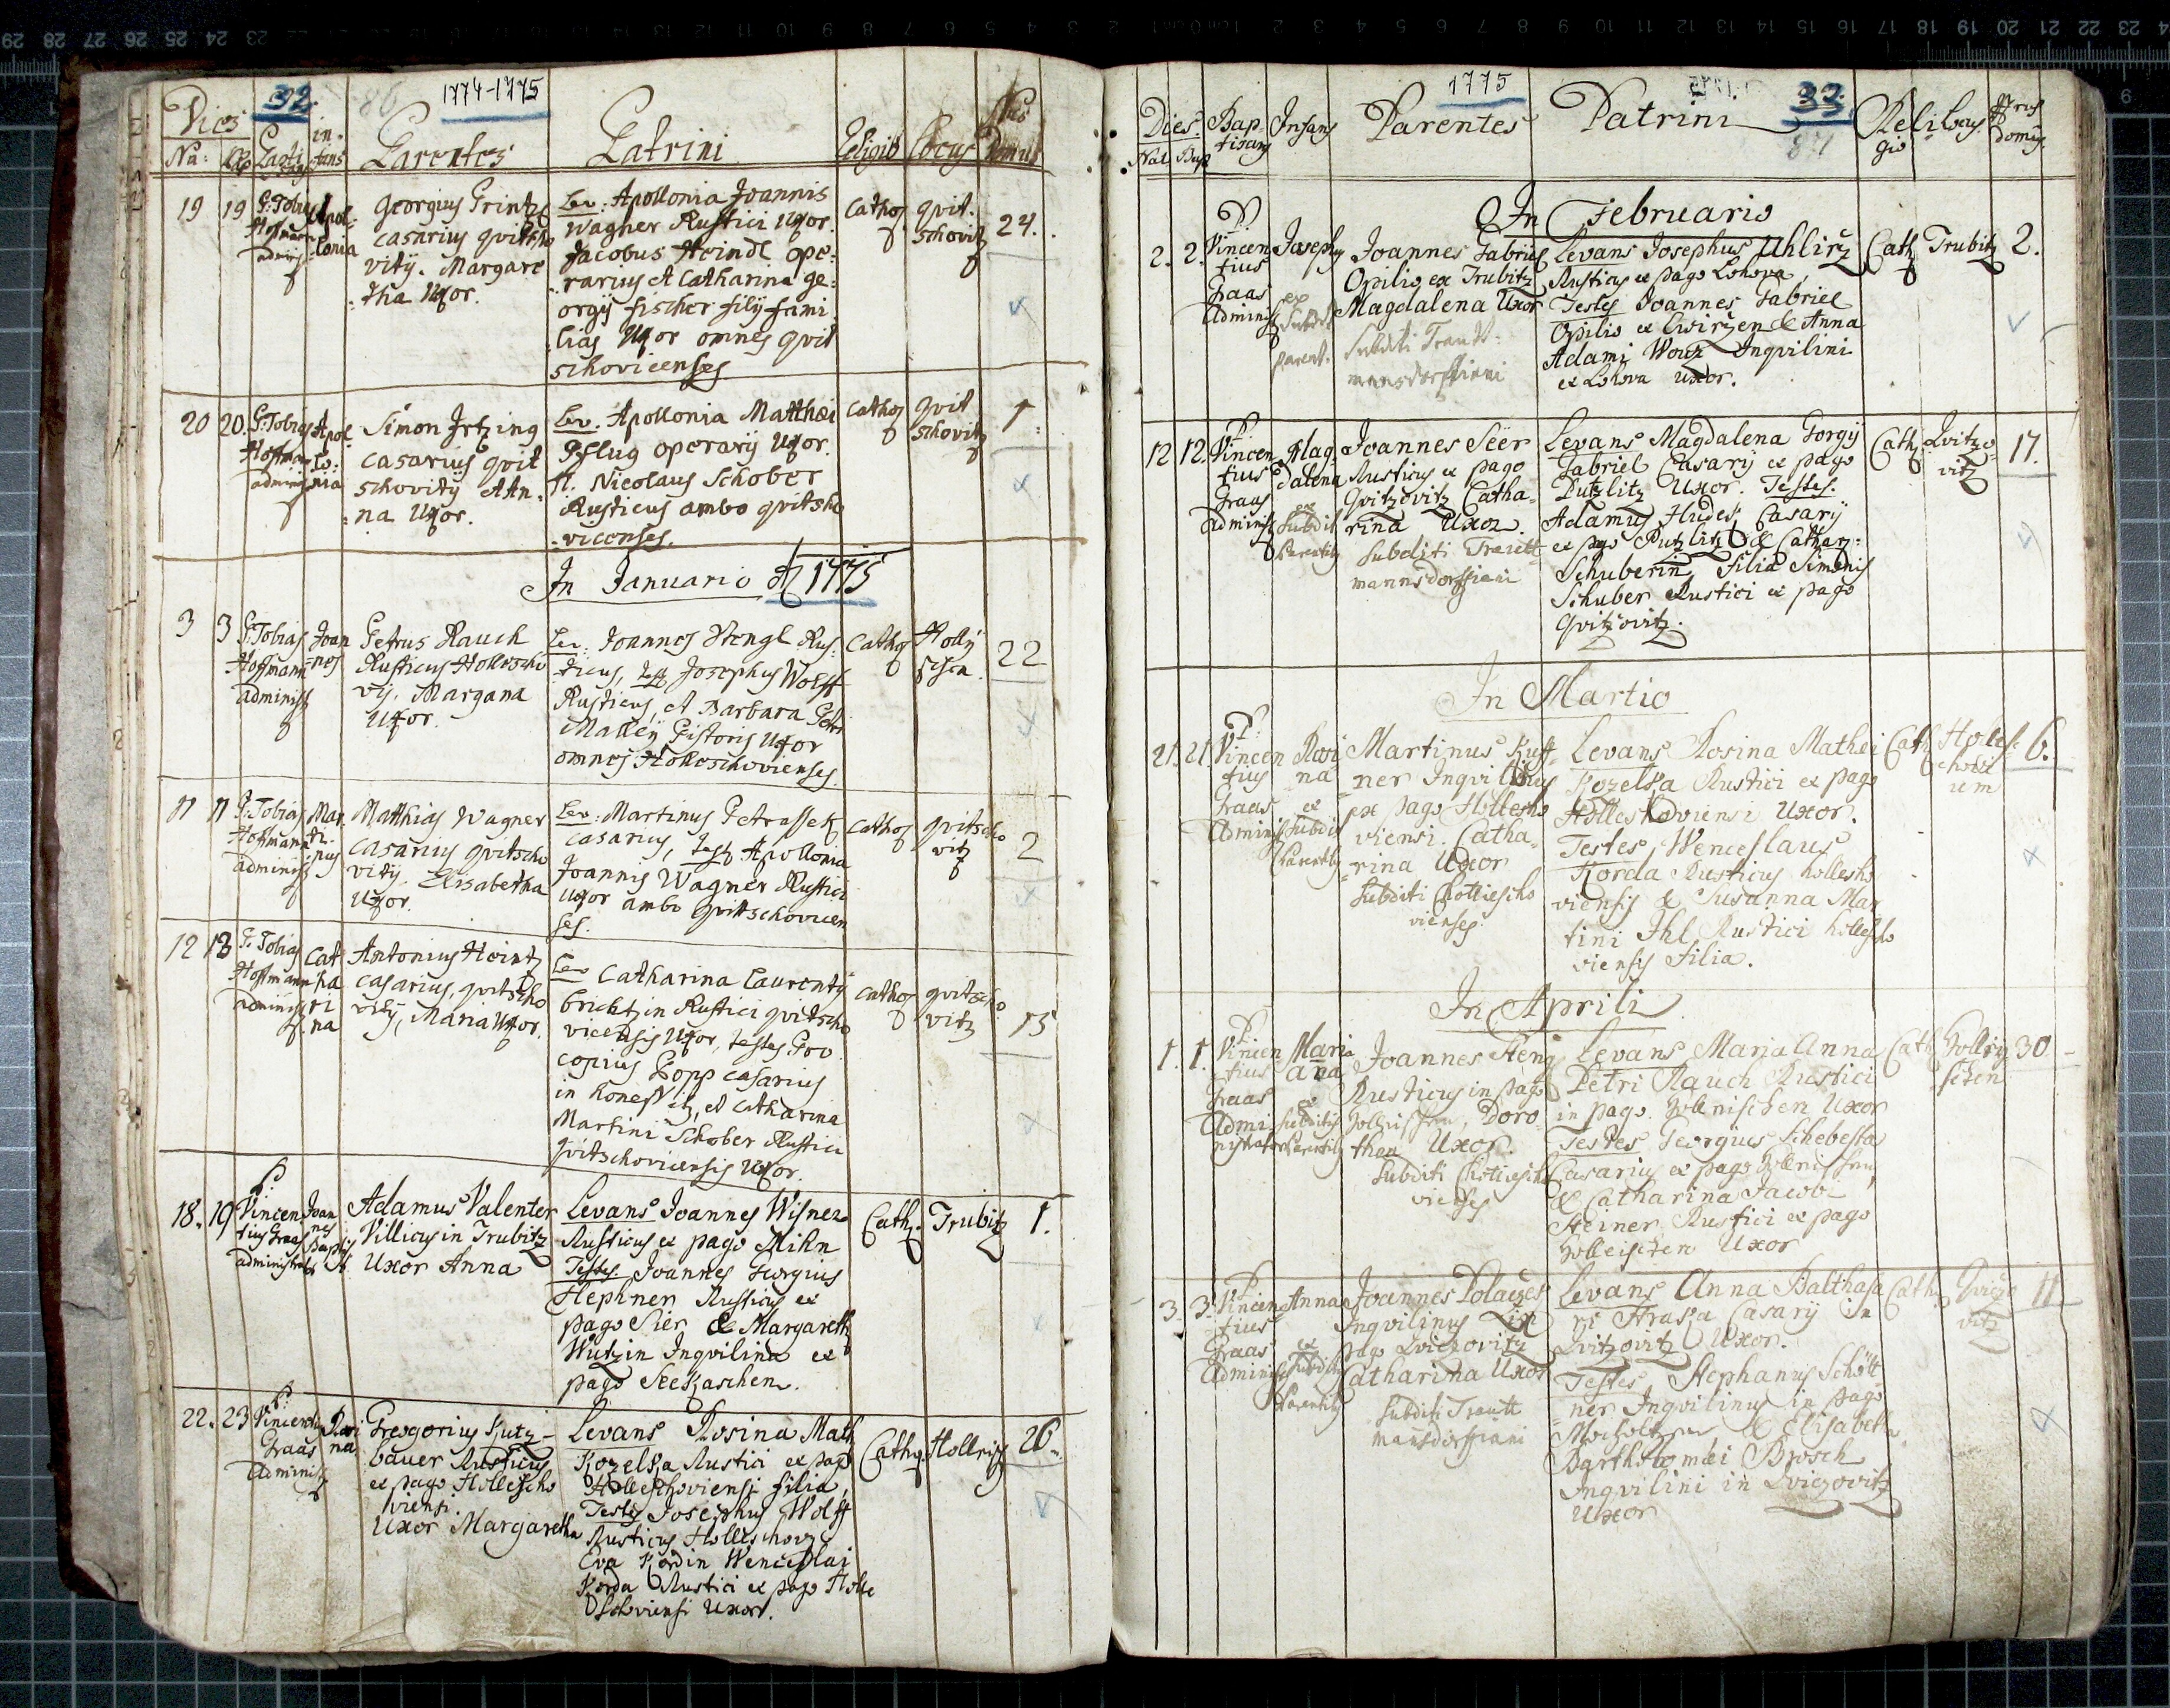 32
1774-1775
Dies
Parentes
Patrini
Religio
Locus
19 19 P. Tobias Hoffmann adminis
Apol-
lonia
Georgius Printz
casarius qvitscho
vitij. Margare
tha Uxor.
Lev: Apollonia Joannis
Wagner Rustici Uxor.
Jacobus Heindl ope:
rarius et Catharina ge:
orgij fischer filij fami
lias Uxor omnes qvit
schovicenses
Cathol
qvit:
schovitz
24.
20 20. P. Tobias Hoffman adminis
Apol
lo:
nia
Simon Irtzing
casarius qvit
schovitij et An:
na Uxor.
Lev. Apollonia Matthaei
Pflug operarij Uxor.
Nicolaus Schober
Rusticus ambo qvitscho
vicenses.
Cathol
qvit
schovitz
1
In Januario 1775
3 3 P. Tobias Hoffmann adminis
Joan
nes
Petrus Rauch
Rusticus Hollescho
vij, Margana
Uxor.
Lev: Joannes Stengl Rus:
ticus, test Josephus Wolff
Rusticus, et Barbara Petri
Malleij Pistoris Uxor
omnes Holleschovienses
Cathol
Holly
schen
22
11 11 P. Tobias Hoffmann adminis
Mar
ti
nus
Matthias Wagner
casarius qvitscho
vitij. Elisabetha
Uxor.
Lev: Martinus Petrassek
casarius, test Apollonia
Joannis Wagner Rustici
Uxor ambo qvittschovicen
ses.
Cathol
qvitscho
vitz
2
12 13 P. Tobias Hoffmann adminis
Cat
ha
ri
na
Antonius Heintz
casarius, qvitscho
vitij, Maria Uxor.
Lev Catharina Laurentij
brichtzin Rustici qvitscho
vicensis Uxor, testes Pro
copius Popp casarius
in Honesvitz, et Catharina
Martini Schober Rustici
qvitschovicensis Uxor.
Cathol
qvitscho
vitz
15
18. 19 P. Vincentius Graas administrator
Joan
nes
Baptis
Adamus Valenter
Villicus in Trubitz
Uxor Anna
Levans Joannes Wisner
Rusticus ex pago Mihn
Testes Joannes Georgius
Hephner Rusticus ex
pago Sier & Margareth
Wutzin Ingvilina ex
pago Seekaschen.
Cath.
Trubitz
1.
22. 23 P. Vincentius Graas adminis
Rosi
na
Gregorius Kutz-
bauer Rusticus
ex pago Hollescho
viensi
Uxor Margaretha
Levans Rosina Math
Kozelka Rustici ex pago
Holleschoviensi filia,
Testes Josephus Wolff
Rusticus Holleschov &
Eva Kordin Wenceslai
Korda Rustici ex pago Holle
schoviensi Uxor.
Cathol
Hollris
26.
1775
33
Dies
Nat Bap
Bap-
tisans
Infans
Parentes
Patrini
Reli
gio
Locus
Nrus
domus
In Februario
2. 2. P. Vincen
tius
Graas
Adminis
Josephus
ex
Subdit
parent.
Joannes Gabriel
Opilio ex Trubitz
Magdalena Uxor
Subditi Trautt-
mannsdorffiani
Levans Josephus Uhlirz
Rusticus ex pago Lohova,
Testes Joannes Gabriel
Opilio ex Cwirzen & Anna
Adami Wonz Ingvilini
ex Lohova Uxor.
Cath
Trubitz
2.
12 12. P. Vincen
tius
Graas
Adminis
Mag
dalena
ex
Subdit
Parentib
Joannes Seer
Rusticus ex pago
Qvitzovitz Catha-
rina Uxor.
Subditi Trautt
mannsdorffiani
Levans Magdalena Gorgij
Gabriel Casarij ex pago
Putzlitz Uxor. Testes:
Adamus Hudes Casarij
ex pago Putzlitz & Cathar:
Schuberin, Filia Simonis
Schuber Rustici ex pago
Qvitzovitz.
Cath.
Qvitzo
vitz
17.
In Martio
21. 21. P. Vincen
tius
Graas
Adminis
Rosi
na
ex
Subdit
Parentib
Martinus Kuff-
ner Ingvilinus
ex pago Hollescho
viensi. Catha-
rina Uxor
Subditi Chotiescho
vienses.
Levans Rosina Mathei
Kozelka Rustici ex pago
Holleschoviensi Uxor.
Testes, Wenceslaus
Korda Rusticus hollescho
viensis & Susanna Mar
tini Ihl Rustici hollescho
viensis Filia.
Cath
Holles-
6.
In Aprili
1. 1. P. Vincen
tius
Graas
Admi
nistrator
Mari
ana
ex
Subditis
Parentib
Joannes Steng
Rusticus in pago
Doro
thea Uxor.
Subditi Chotiescho
vienses
Levans Maria Anna
Petri Rauch Rustici
in pago Hollnischen Uxor
Testes Georgius Schebesta
Casarius ex pago Hollnischen,
& Catharina Jacobi
Steiner Rustici ex pago
Holleischen Uxor
Cath
Hollei
schen
30
3. 3. P. Vincen
tius
Graas
Adminis
Anna
ex
Subditis
Parentib
Joannes Polaczek
Ingvilinus
pago Qviczovitz
Catharina Uxor
Subditi Trautt
mansdorffiani
Levans Anna Balthasa
ri Straka Casarij in
Qvitzovitz Uxor.
Testes Stephanus Schött
ner Ingvilinus in pago
& Elisabetha
Bartholomaei Brosch
Ingvilini in Qviczovitz
Uxor
Cath
Qviczo
vitz
11